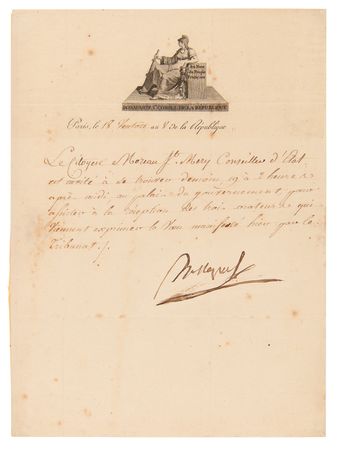 Au Nom
du Peuple
Français
BONAPARTE, 1er CONSUL DE LA RÉPUBLIQUE.
Paris, le 18 Ventose an 8 de la République
Le citoyen Moreau St. Mery Conseiller d'État
est invité à se trouver demain 19 à 2 heures
après midi au palais du gouvernement, pour
assister à la réception des trois orateurs qui
viennent exprimer le Vœu manifesté hier par le
Tribunat./.